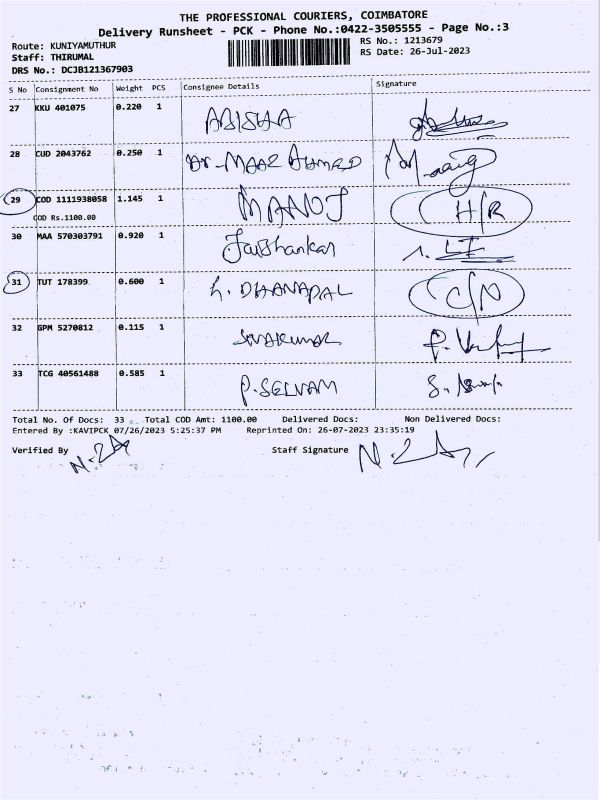 THE PROFESSIONAL COURIERS, COIMBATORE
Delivery Runsheet - PCK - Phone No.:0422-3505555 - Page No.:3
Route: KUNIYAMUTHUR
RS No.: 1213679
Staff: THIRUMAL
RS Date: 26-Jul-2023
DRS No.: DCJB121367903
S No Consignment No Weight PCS Consignee Details Signature
27 KKU 401075 0.220 1 ABISHA
28 CUD 2043762 0.250 1 Dr-MAAZ AHMED
29 COD 1111938058 1.145 1 MANOJ H/R
COD Rs.1100.00
30 MAA 570303791 0.920 1 Jaishankar
31 TUT 178399 0.600 1 DHANAPAL C/N
32 GPM 5270812 0.115 1 SIVAKUMAR
33 TCG 40561488 0.585 1 P.SELVAM
Total No. Of Docs: 33 Total COD Amt: 1100.00 Delivered Docs: Non Delivered Docs:
Entered By :KAVIPCK 07/26/2023 5:25:37 PM Reprinted On: 26-07-2023 23:35:19
Verified By Staff Signature